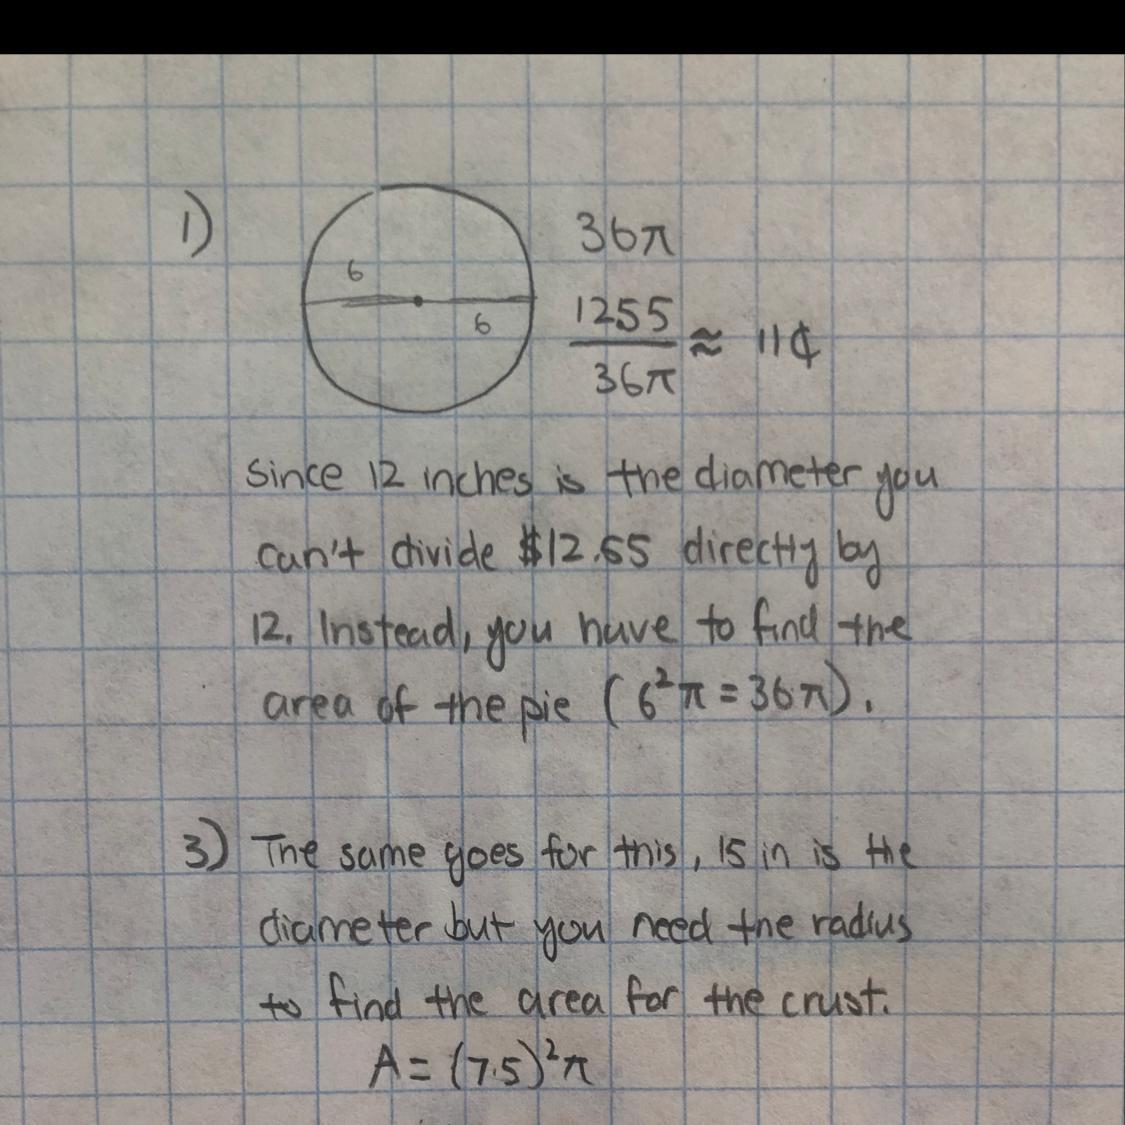 1)
6
6
36π
1255
36π
≈ 11¢
Since 12 inches is the diameter you
can't divide $12.55 directly by
12. Instead, you have to find the
area of the pie (6²π = 36π).
3) The same goes for this, 15 in is the
diameter but you need the radius
to find the area for the crust.
A = (7.5)²π